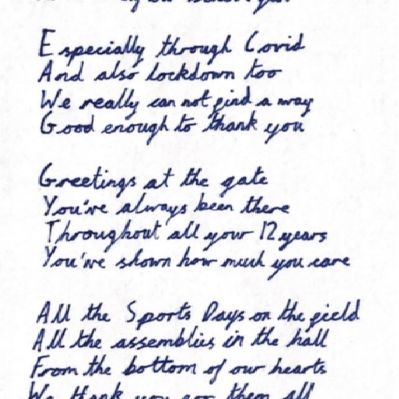 Especially through Covid
And also lockdown too
We really can not find a way
Good enough to thank you
Greetings at the gate
You've always been there
Throughout all your 12 years
You've shown how much you care
All the Sports Days on the field
All the assemblies in the hall
From the bottom of our hearts
We thank you for them all